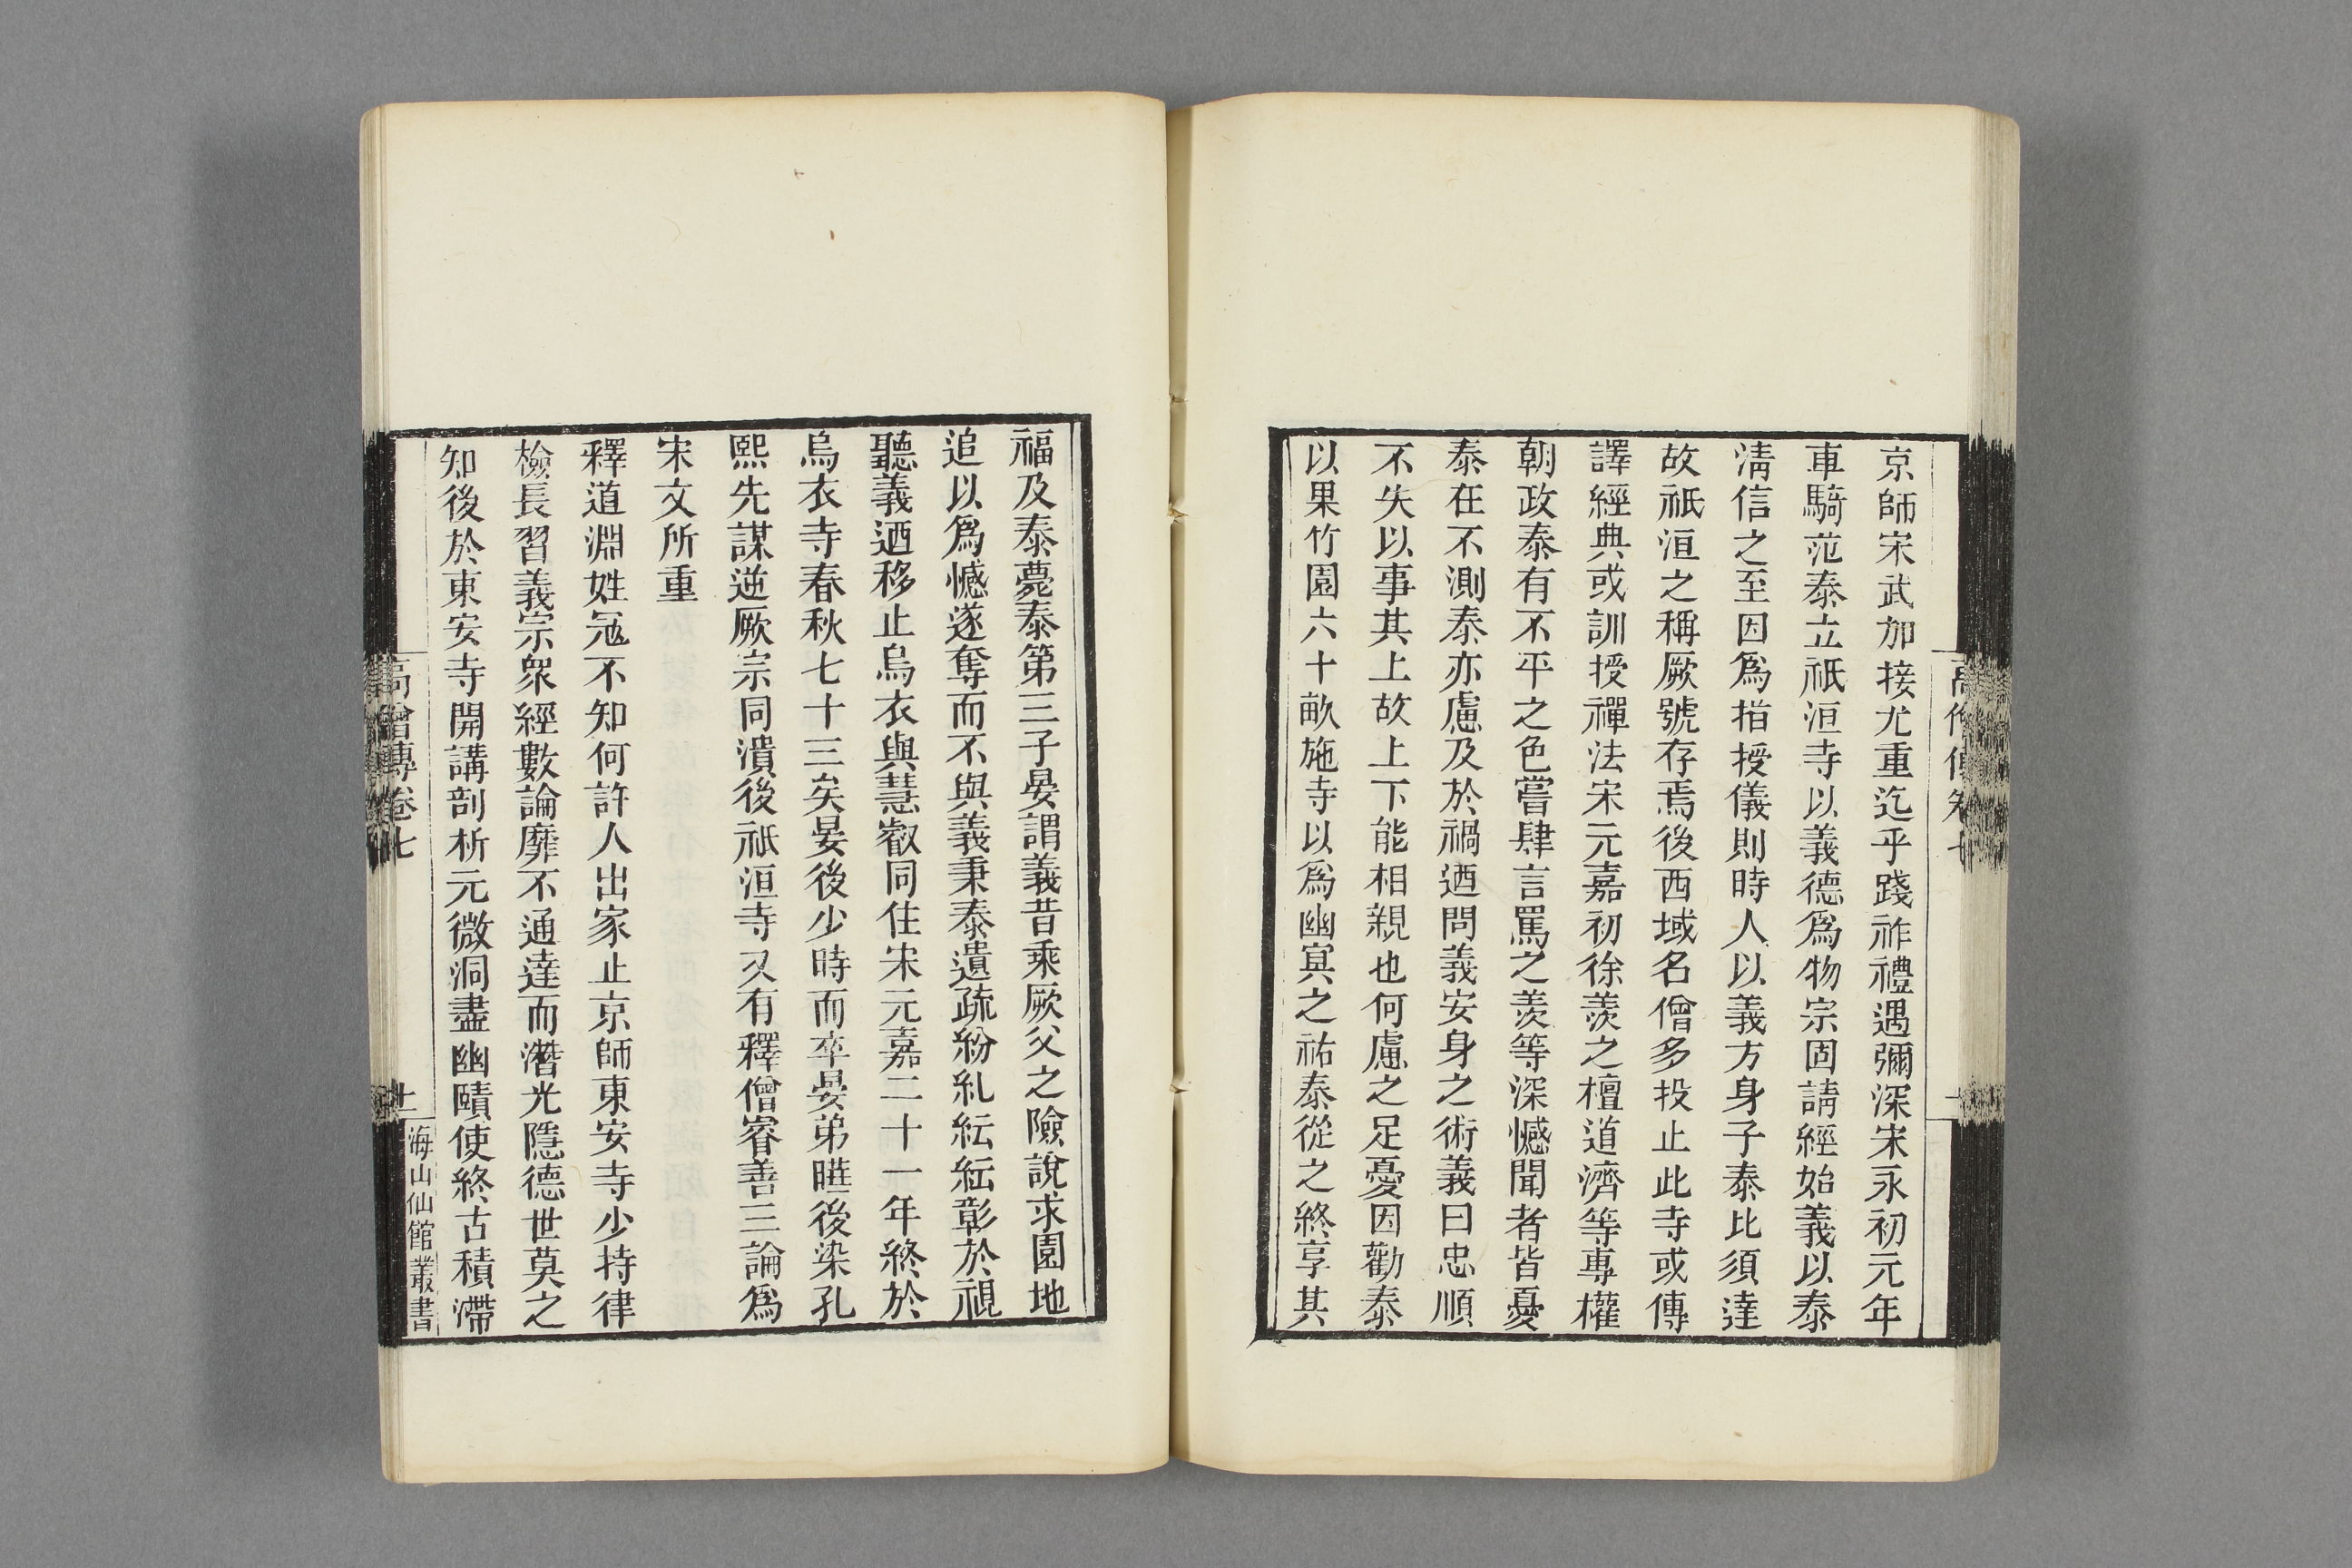 京師宋武加接尤重迄乎踐祚禮遇彌深宋永初元年
車騎范泰立祇洹寺以義德爲物宗固請經始義以泰
淸信之至因爲指授儀則時人以義方身子泰比須達
故祇洹之稱厥號存焉後西域名僧多投止此寺或傳
譯經典或訓授禪法宋元嘉初徐羨之檀道濟等專權
朝政泰有不平之色嘗肆言罵之羨等深憾聞者皆憂
泰在不測泰亦慮及於禍迺問義安身之術義曰忠順
不失以事其上故上下能相親也何慮之足憂因勸泰
以果竹園六十畝施寺以爲幽冥之祐泰從之終享其
福及泰薨泰第三子晏謂義昔乘厥父之險說求園地
追以爲憾遂奪而不與義秉泰遺疏紛糺紜紜彰於視
聽義迺移止烏衣與慧叡同住宋元嘉二十一年終於
烏衣寺春秋七十三矣晏後少時而卒晏弟曄後染孔
熙先謀逆厥宗同潰後祇洹寺又有釋僧睿善三論爲
宋文所重
釋道淵姓冦不知何許人出家止京師東安寺少持律
檢長習義宗衆經數論靡不通達而潛光隱德世莫之
知後於東安寺開講剖析元微洞盡幽賾使終古積滯
高僧傳卷七
十
海山仙館叢書